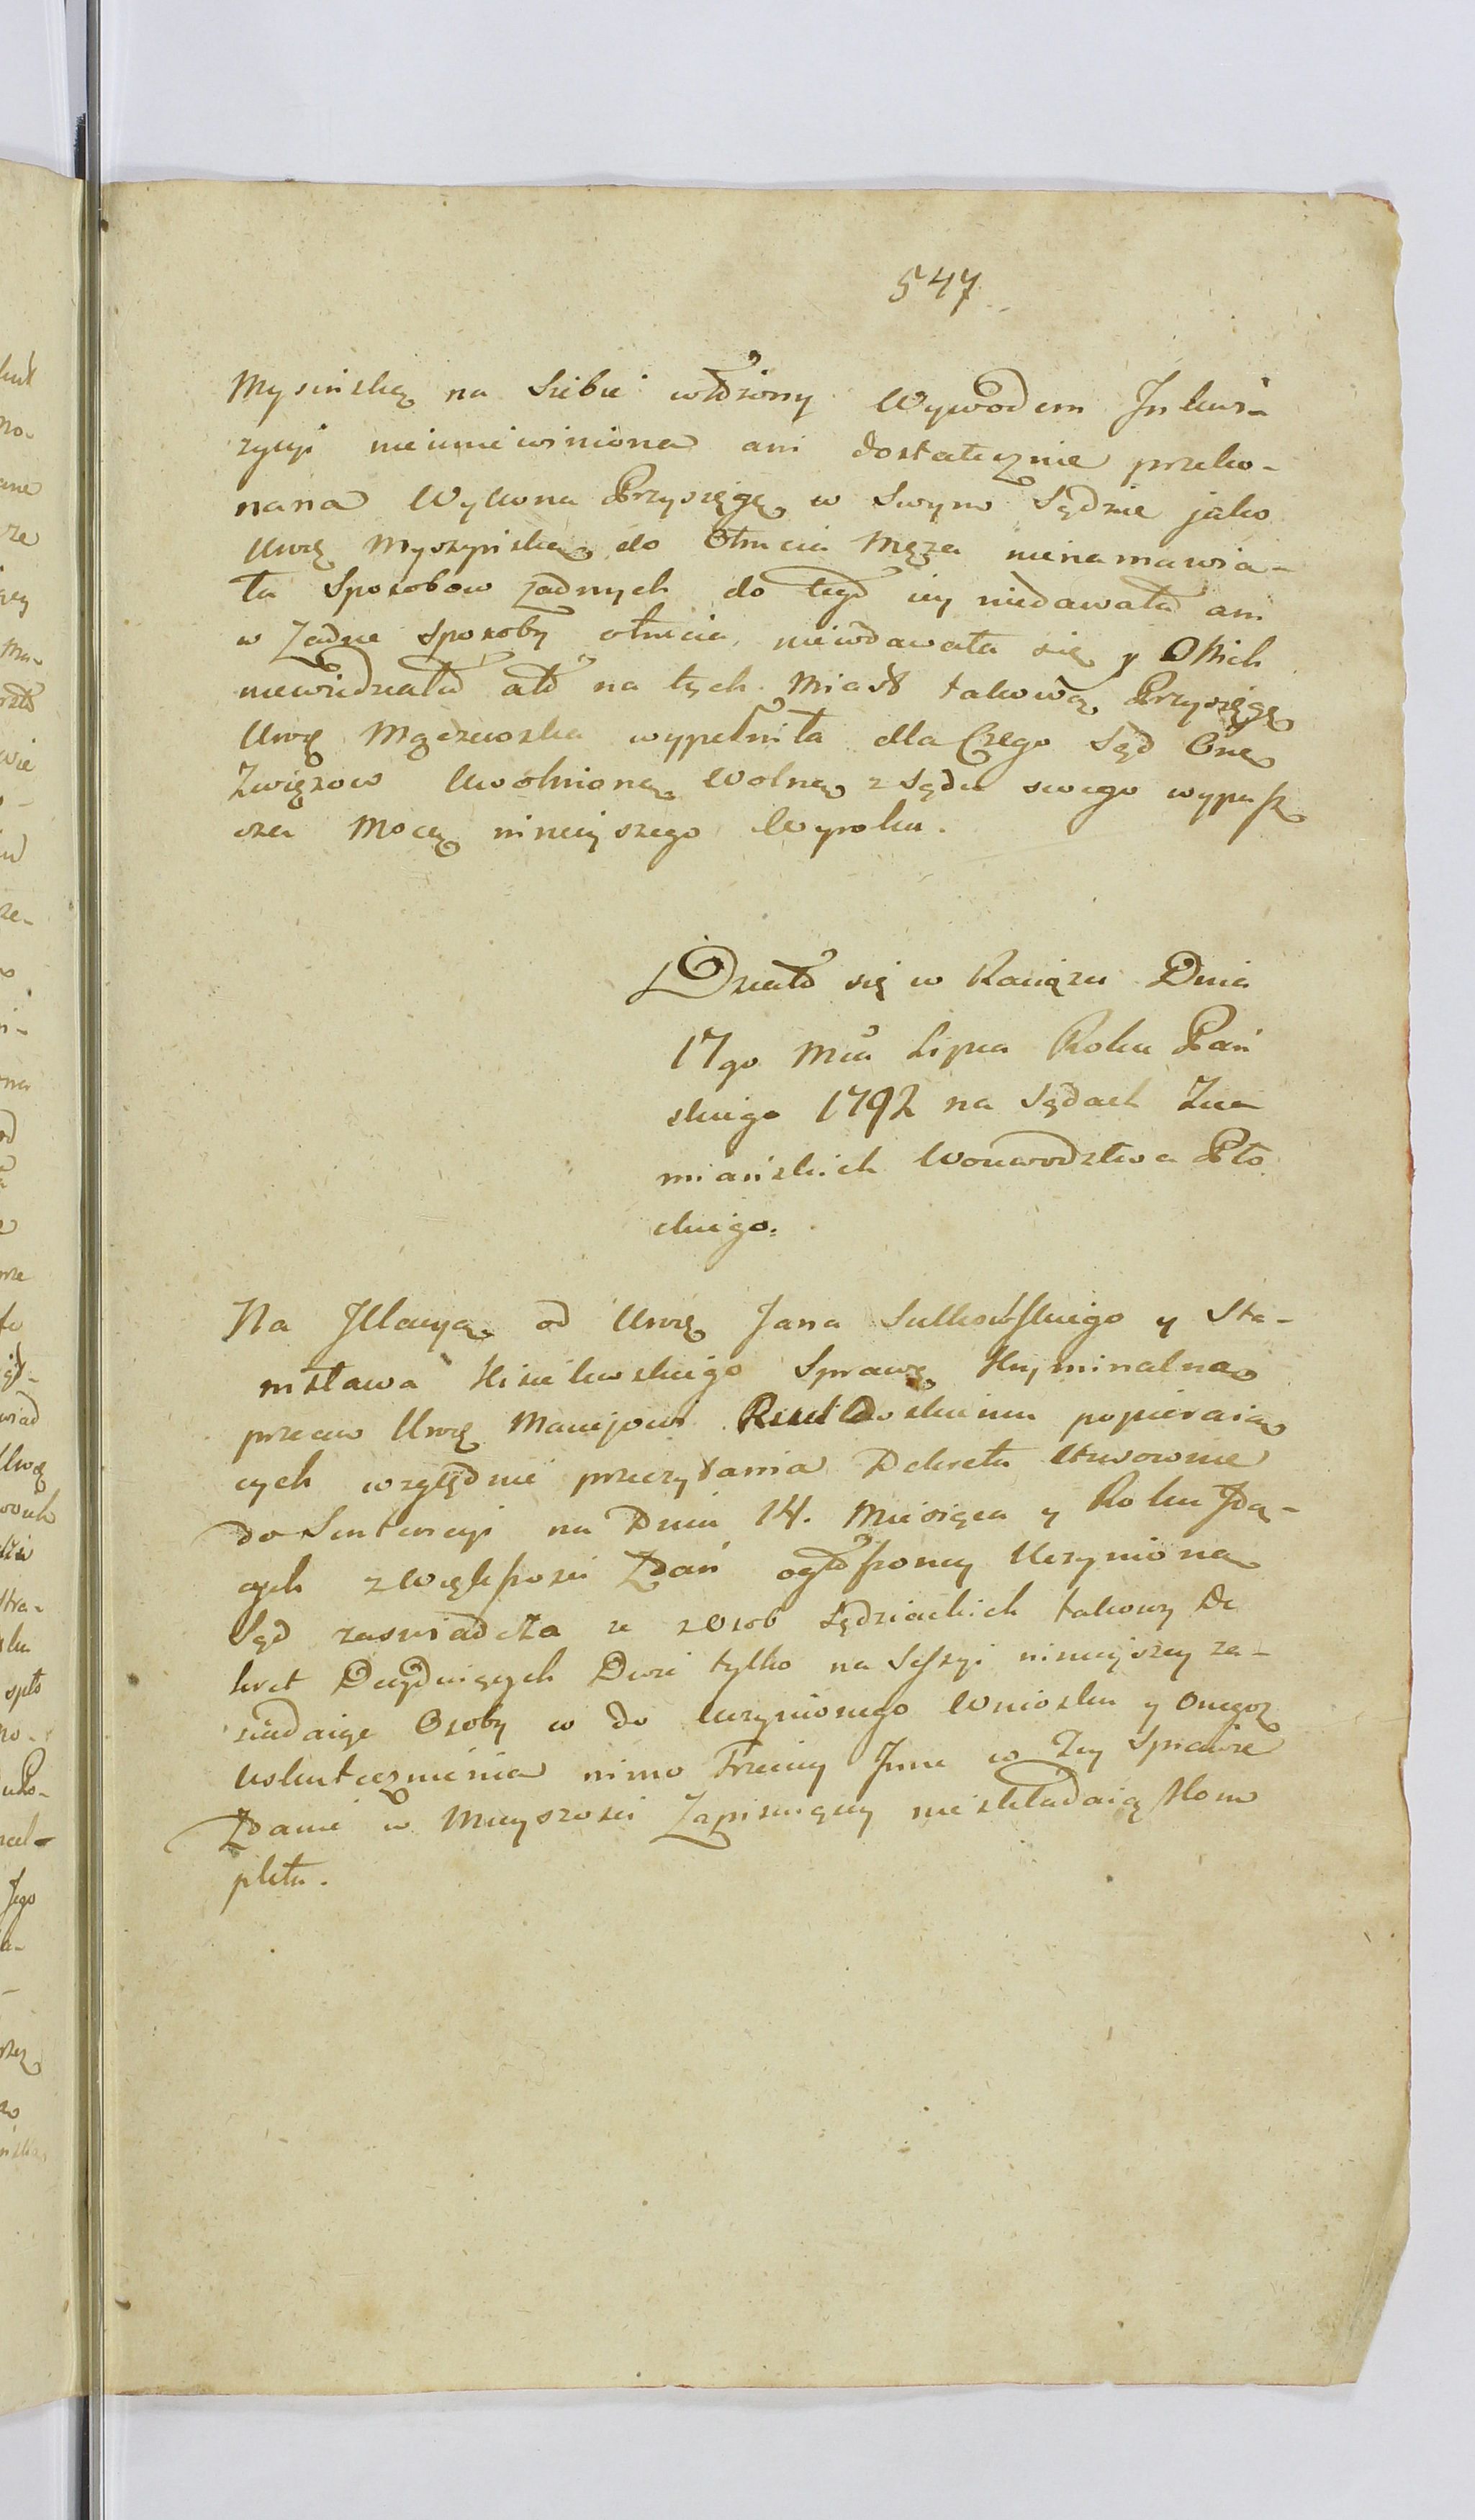 547
Mysińską na Siebie włożony Wywodem Inkwi-
zycyi nieuniewiniona ani dostatecznie przeko-
nana Wykona Przysięgę w Swym Sądzie jako
Urę Myszyńską do Otrucia Męża nienamawia-
ła Sposobow żadnych do tego iey niedawała ani
w żadne Sposoby otrucia niewdawała się y O Nich
niewiedziała ale na tych Miast takową Przysięgę
Urę wypełniła dla Czego Sąd Onę
Związow Uwolnioną Wolną z Sądu swego wypusz
cza Mocą ninieyszego Wyroku.
Działo się w Raciążu Dnia
17go Mca Lipca Roku Pań
skiego 1792 na Sądach Zie
miańskich Woiewodztwa Pło
ckiego.
Na Illacyą od Urę Jana Sulkowskiego y Sta-
nisława Kisielewskiego Sprawę Kryminalną
przeciw Urę Maciejowi popieraią
cych względnie przeczytania Dekretu Stosownie
do Sentencyi na Dniu 14. Miesiąca y Roku Idą-
cych z Większosci Zdań ogłoszoney Uczynioną
Sąd zaswiadcza że z Osob Sędziackich takowy De
kret Decyduiących Dwie tylko na Sessyi ninieyszey za-
siadaiąc Osoby w do Uczynionego Wniosku y Onegoż
Uskutecznienia mimo Trzeciey Inne w Tey Sprawie
Zdanie w Mnieyszosci Zapisuiącey nieskładaią Kom
pletu.